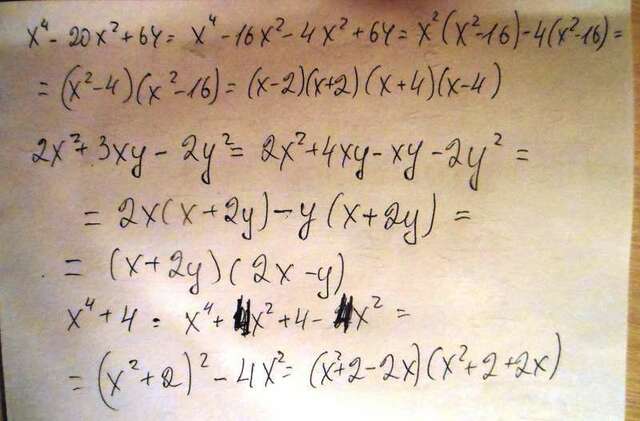 x⁴ - 20x² + 64 = x⁴ - 16x² - 4x² + 64 = x²(x² - 16) - 4(x² - 16) =
= (x² - 4)(x² - 16) = (x - 2)(x + 2)(x + 4)(x - 4)
2x² + 3xy - 2y² = 2x² + 4xy - xy - 2y² =
= 2x(x + 2y) - y(x + 2y) =
= (x + 2y)(2x - y)
x⁴ + 4 = x⁴ + 4x² + 4 - 4x² =
= (x² + 2)² - 4x² = (x² + 2 - 2x)(x² + 2 + 2x)